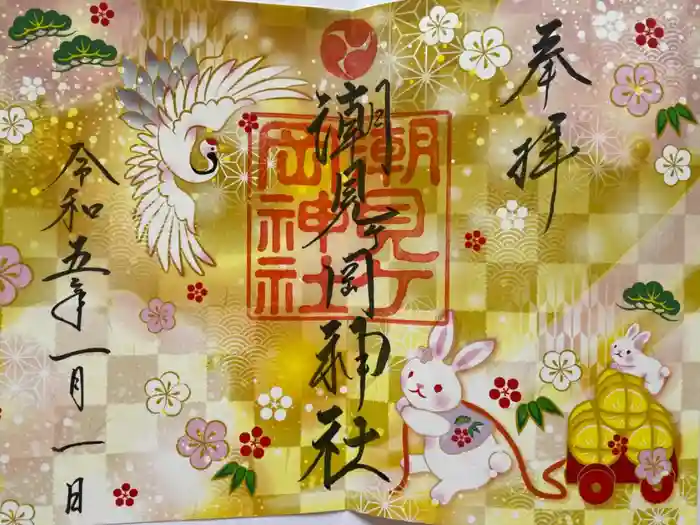 奉拝
潮見ケ岡神社
潮見ケ
岡神社
令和五年一月一日